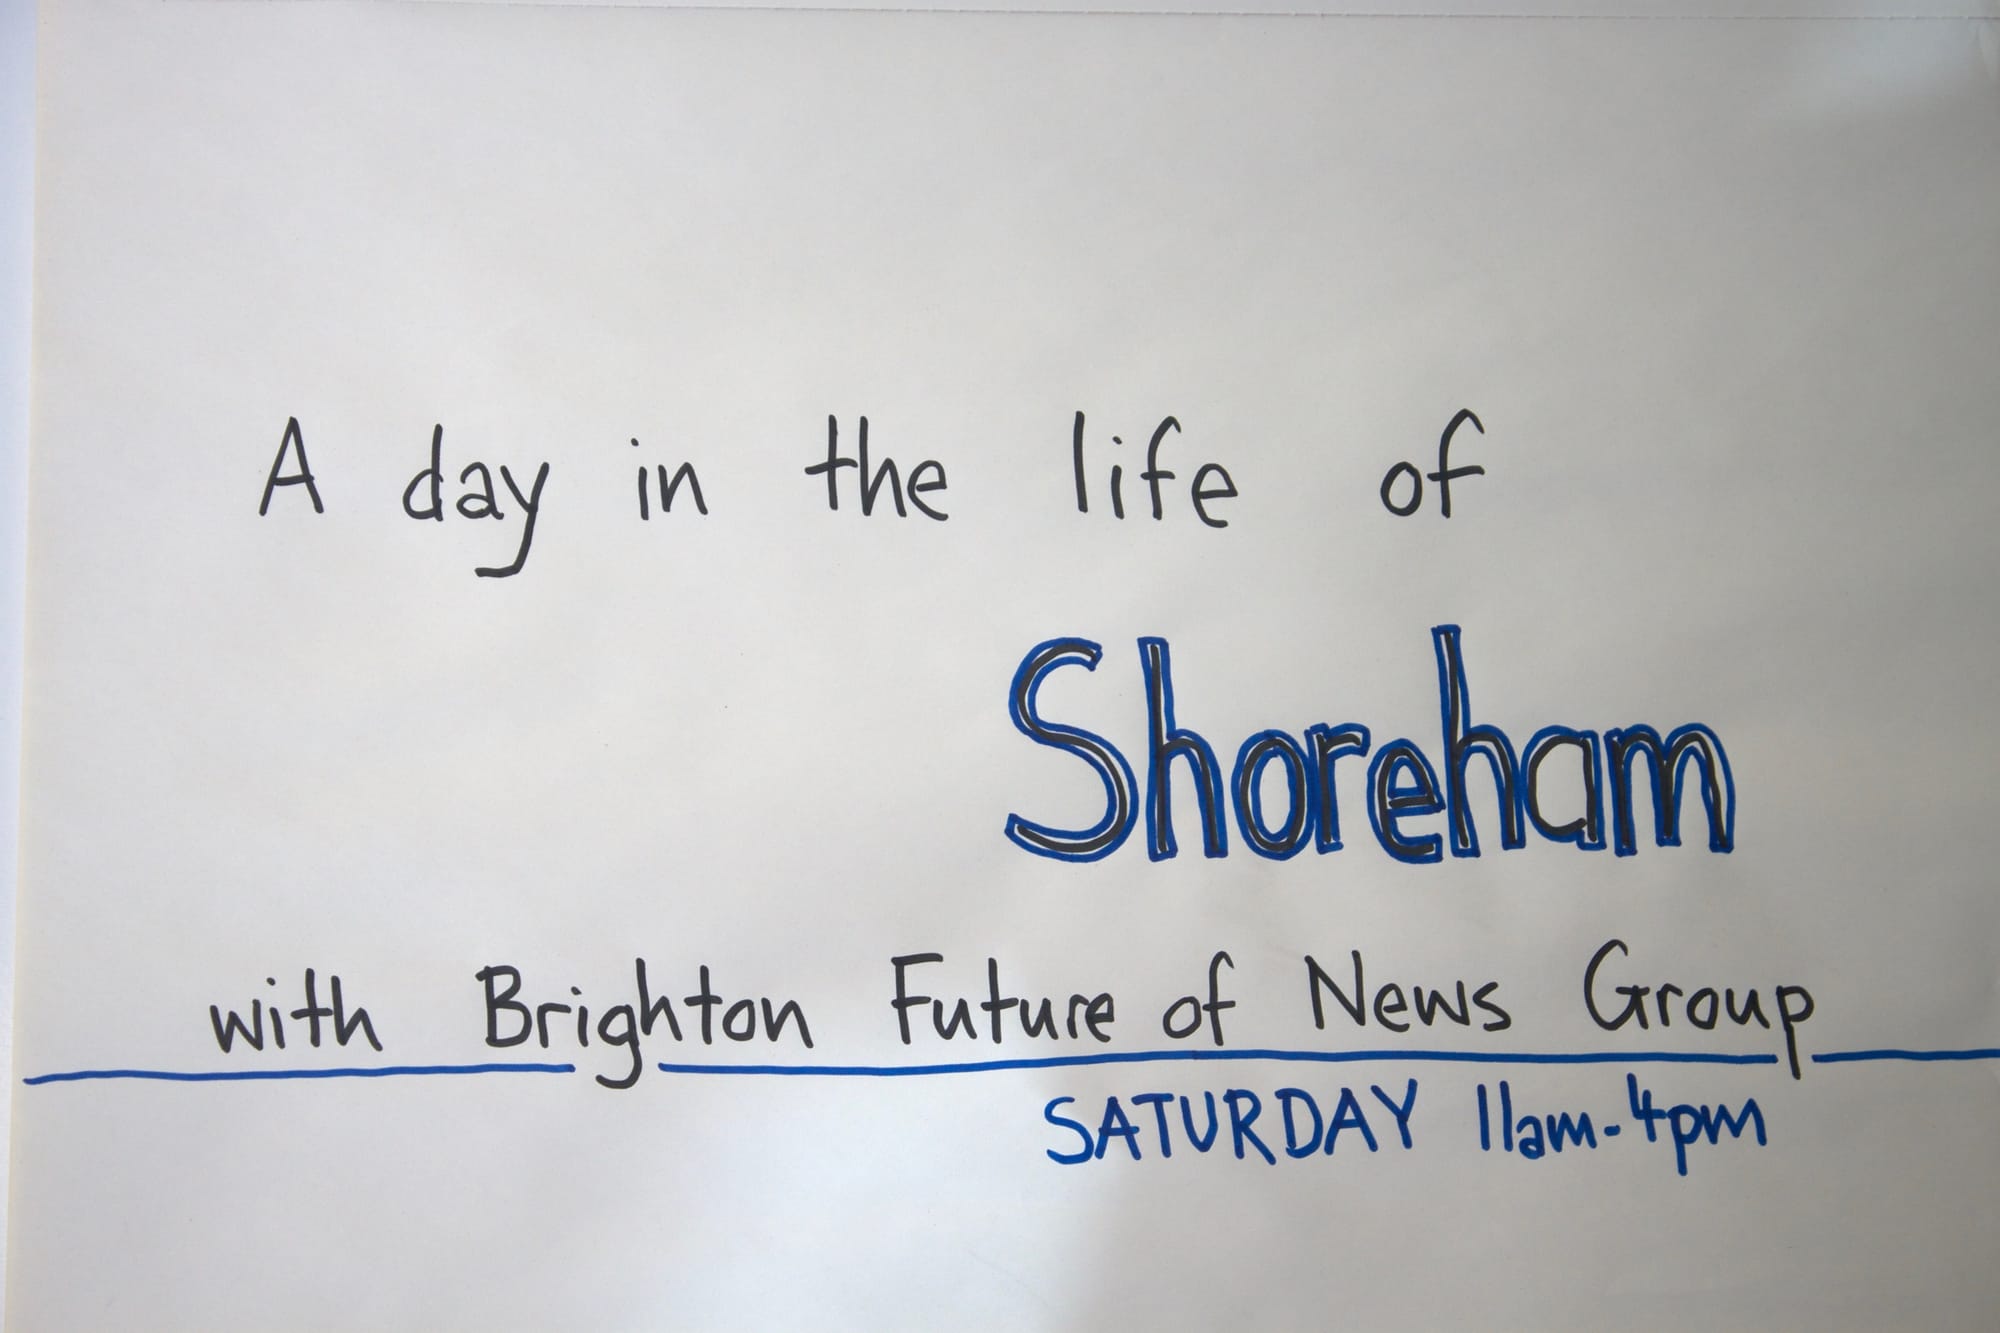 A day in the life of
Shoreham
with Brighton Future of News Group
SATURDAY 11am-4pm